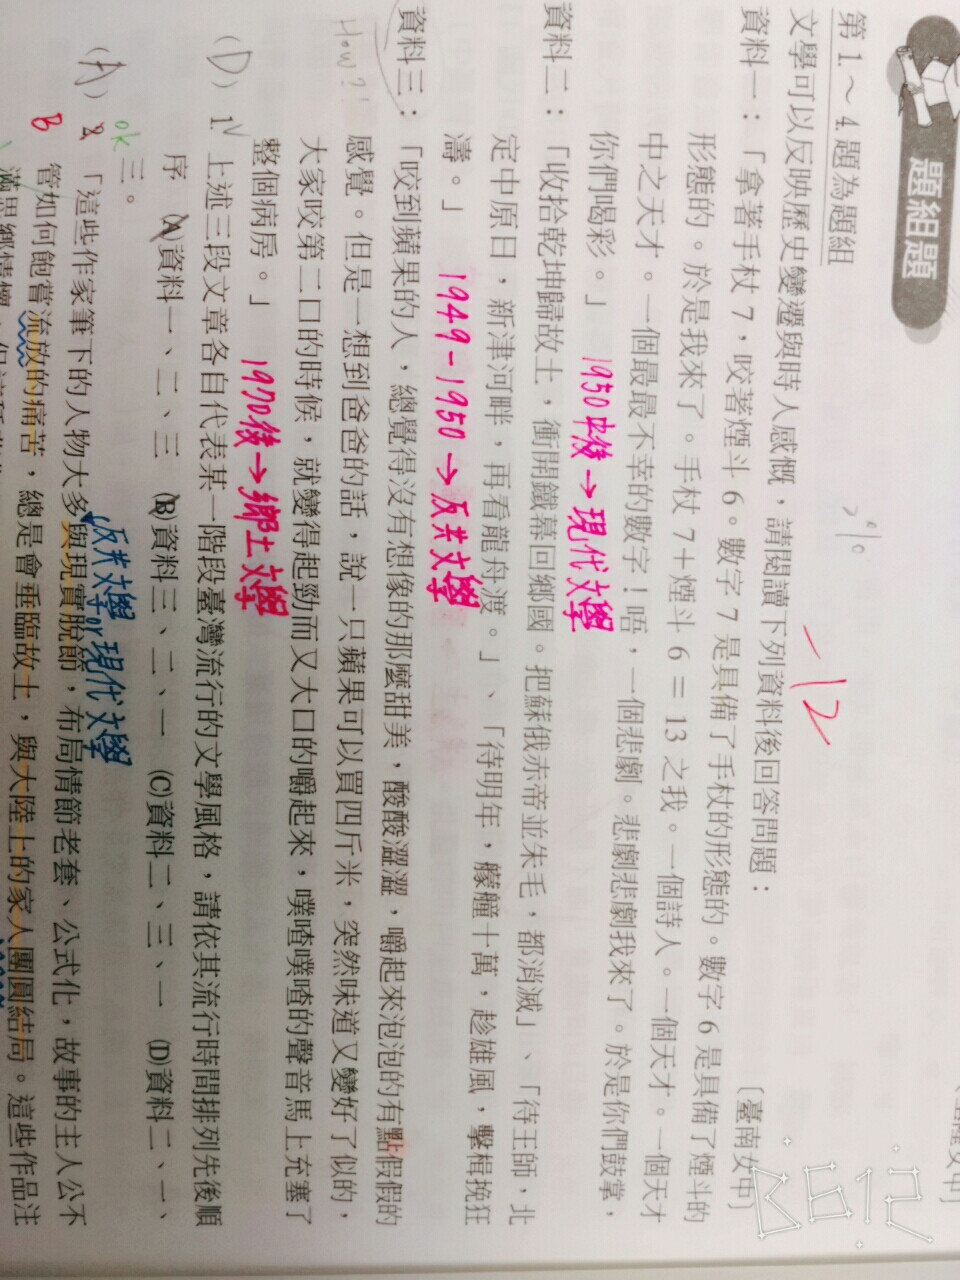 題組題
第1～4.題為題組
文學可以反映歷史變遷與時人感慨，請閱讀下列資料後回答問題：
〔臺南女中〕
-12
資料一：「拿著手杖7，咬著煙斗6。數字7是具備了手杖的形態的。數字6是具備了煙斗的
形態的。於是我來了。手杖7+煙斗6=13之我。一個詩人。一個天才。一個天才
中之天才。一個最最不幸的數字！唔，一個悲劇。悲劇悲劇我來了。於是你們鼓掌，
你們喝彩。」
1950中後→現代文學
資料二：「收拾乾坤歸故土，衝開鐵幕回鄉國。把蘇俄赤帝並朱毛，都消滅」、「待王師，北
定中原日，新津河畔，再看龍舟渡。」、「待明年，艨艟十萬，趁雄風，擊楫挽狂
濤。」
1949-1950→反共文學
資料三：「咬到蘋果的人，總覺得沒有想像的那麼甜美，酸酸澀澀，嚼起來泡泡的有點假假的
How?!
感覺。但是一想到爸爸的話，說一只蘋果可以買四斤米，突然味道又變好了似的，
大家咬第二口的時候，就變得起勁而又大口的嚼起來，噗喳噗喳的聲音馬上充塞了
整個病房。」
1970後→鄉土文學
(D) 1.上述三段文章各自代表某一階段臺灣流行的文學風格，請依其流行時間排列先後順
序 (A)資料一、二、三 (B)資料三、二、一 (C)資料二、三、一 (D)資料二、一、
三。
ok
反共文學or現代文學
(A) 2.「這些作家筆下的人物大多與現實脫節，布局情節老套、公式化，故事的主人公不
B
管如何飽嘗流放的痛苦，總是會垂臨故土，與大陸上的家人團圓結局。這些作品注
滿思鄉情懷，